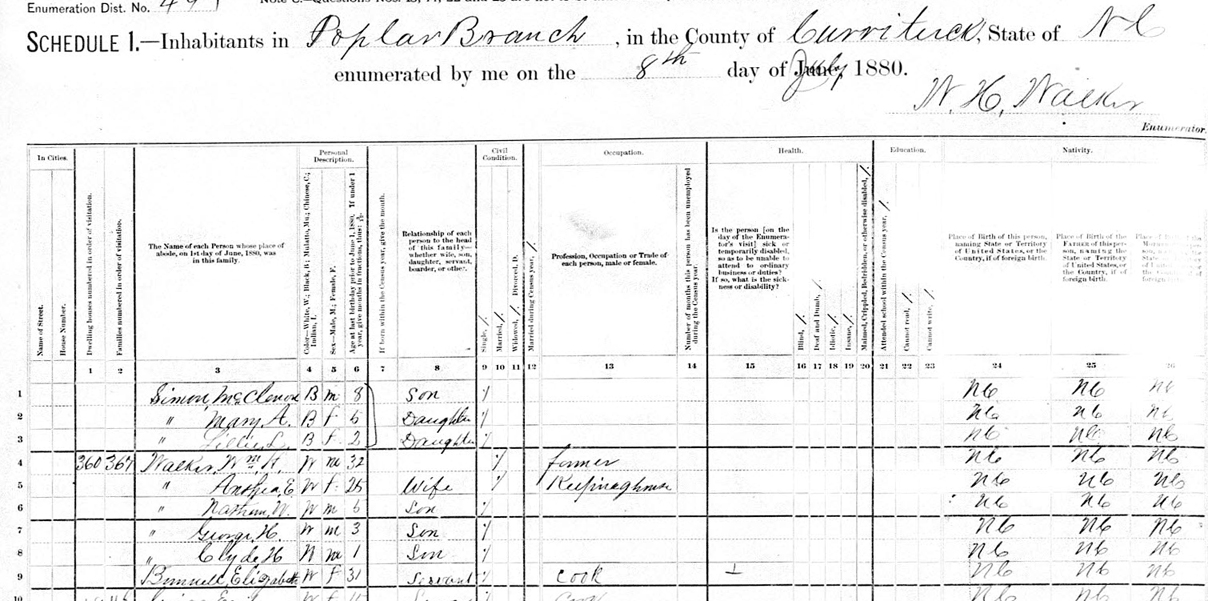 Enumeration Dist. No. 491
SCHEDULE 1.—Inhabitants in Poplar Branch, in the County of Currituck, State of N C
enumerated by me on the 8th day of June, July 1880.
W. H. Walker
Enumerator.
In Cities. Personal Description. Civil Condition. Occupation. Health. Education. Nativity.
Name of Street.
House Number.
Dwelling houses numbered in order of visitation.
Families numbered in order of visitation.
The Name of each Person whose place of abode, on 1st day of June, 1880, was in this family.
Color—White, W.; Black, B.; Mulatto, Mu.; Chinese, C.; Indian, I.
Sex—Male, M.; Female, F.
Age at last birthday prior to June 1, 1880. If under 1 year, give months in fractions, thus:
If born within the Census year, give the month.
Relationship of each person to the head of this family—whether wife, son, daughter, servant, boarder, or other.
Single, /
Married, /
Widowed, / Divorced, D.
Married during Census year, /
Profession, Occupation or Trade of each person, male or female.
Number of months this person has been unemployed during the Census year
Is the person [on the day of the Enumerator's visit] sick or temporarily disabled, so as to be unable to attend to ordinary business or duties? If so, what is the sickness or disability?
Blind, /
Deaf and Dumb, /
Idiotic, /
Insane, /
Maimed, Crippled, Bedridden, or otherwise disabled, /
Attended school within the Census year, /
Cannot read, /
Cannot write, /
Place of Birth of this person, naming State or Territory of United States, or the Country, if of foreign birth.
Place of Birth of the FATHER of this person, naming the State or Territory of United States, or the Country, if of foreign birth.
1 2 3 4 5 6 7 8 9 10 11 12 13 14 15 16 17 18 19 20 21 22 23 24 25 26
1 Simon, McClenon B m 8 Son / NC NC NC
2 " Mary A. B f 5 Daughter / NC NC NC
3 " B f 2 Daughter / NC NC NC
4 360 367 Walker, Wm. H. W m 32 / farmer NC NC NC
5 " E W f 25 Wife / Keeping house NC NC NC
6 " Nathan W. W m 6 Son / NC NC NC
7 " George H. W m 3 Son / NC NC NC
8 " Clyde H W m 1 Son / NC NC NC
9 Elizabeth W f 31 Servant / cook NC NC NC
10